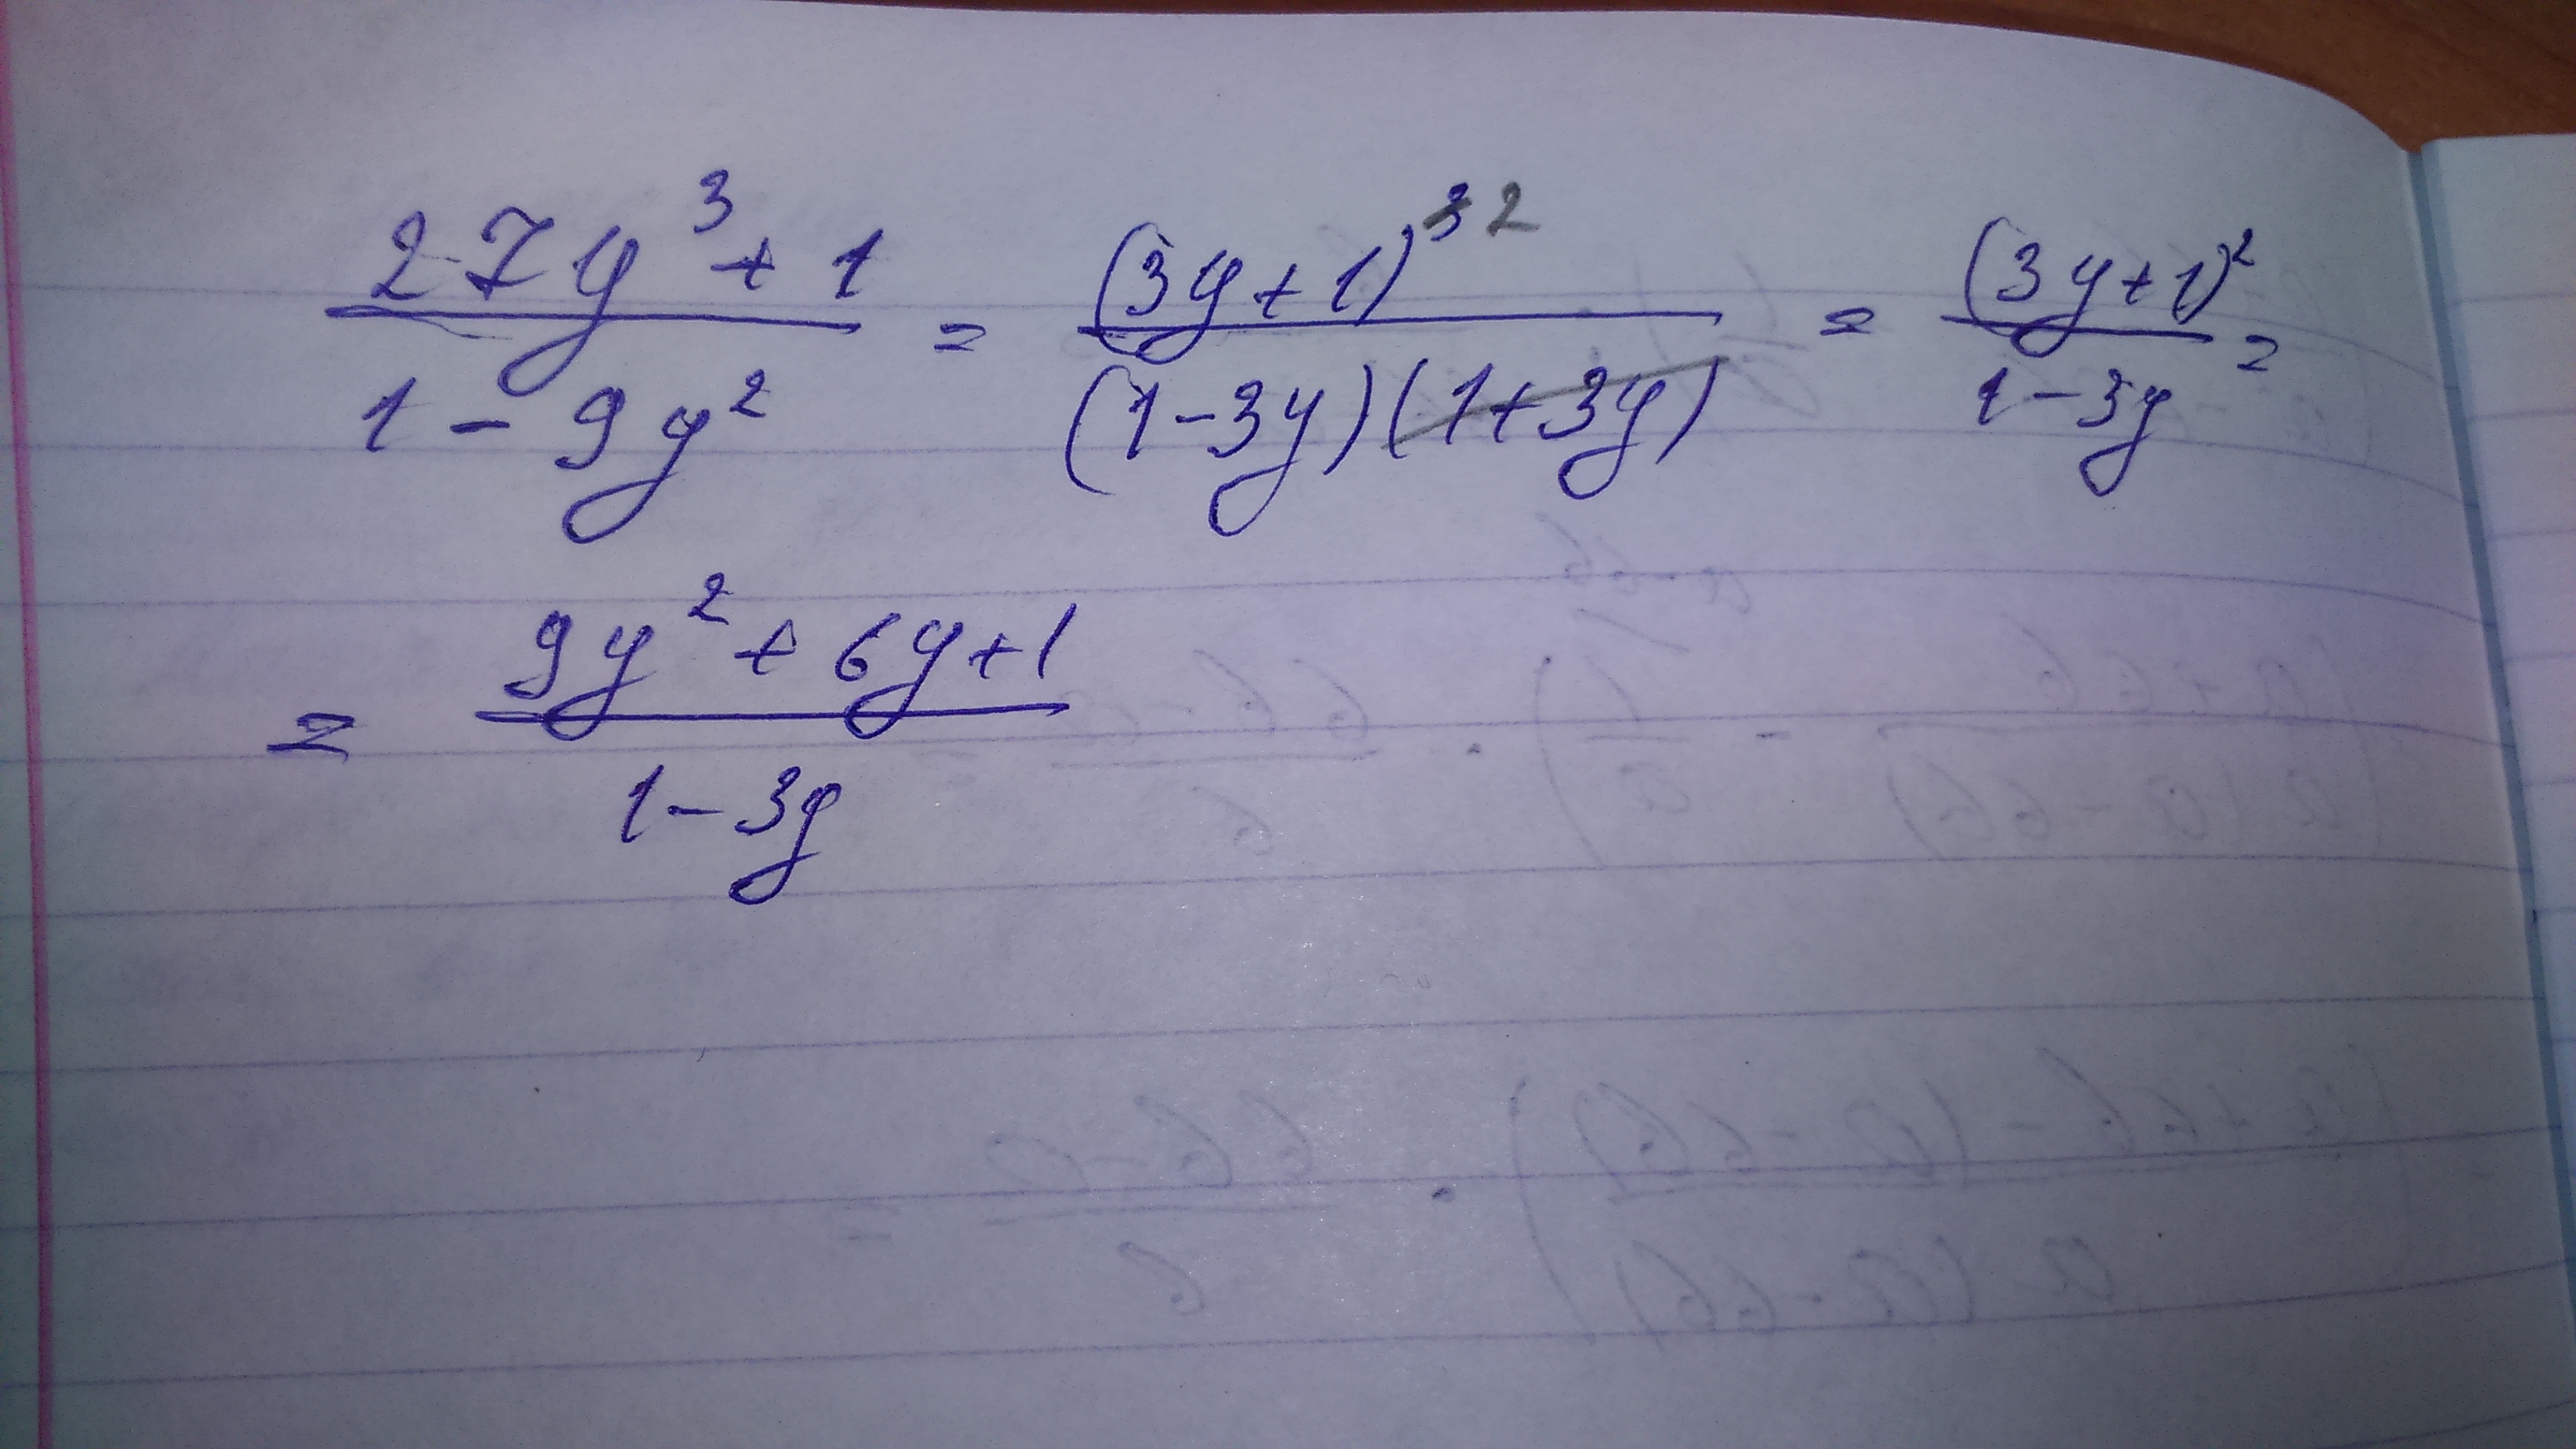 (27y³ + 1)/(1 - 9y²) = (3y + 1)³ ²/((1 - 3y)(1 + 3y)) = (3y + 1)²/(1 - 3y) =
= (9y² + 6y + 1)/(1 - 3y)